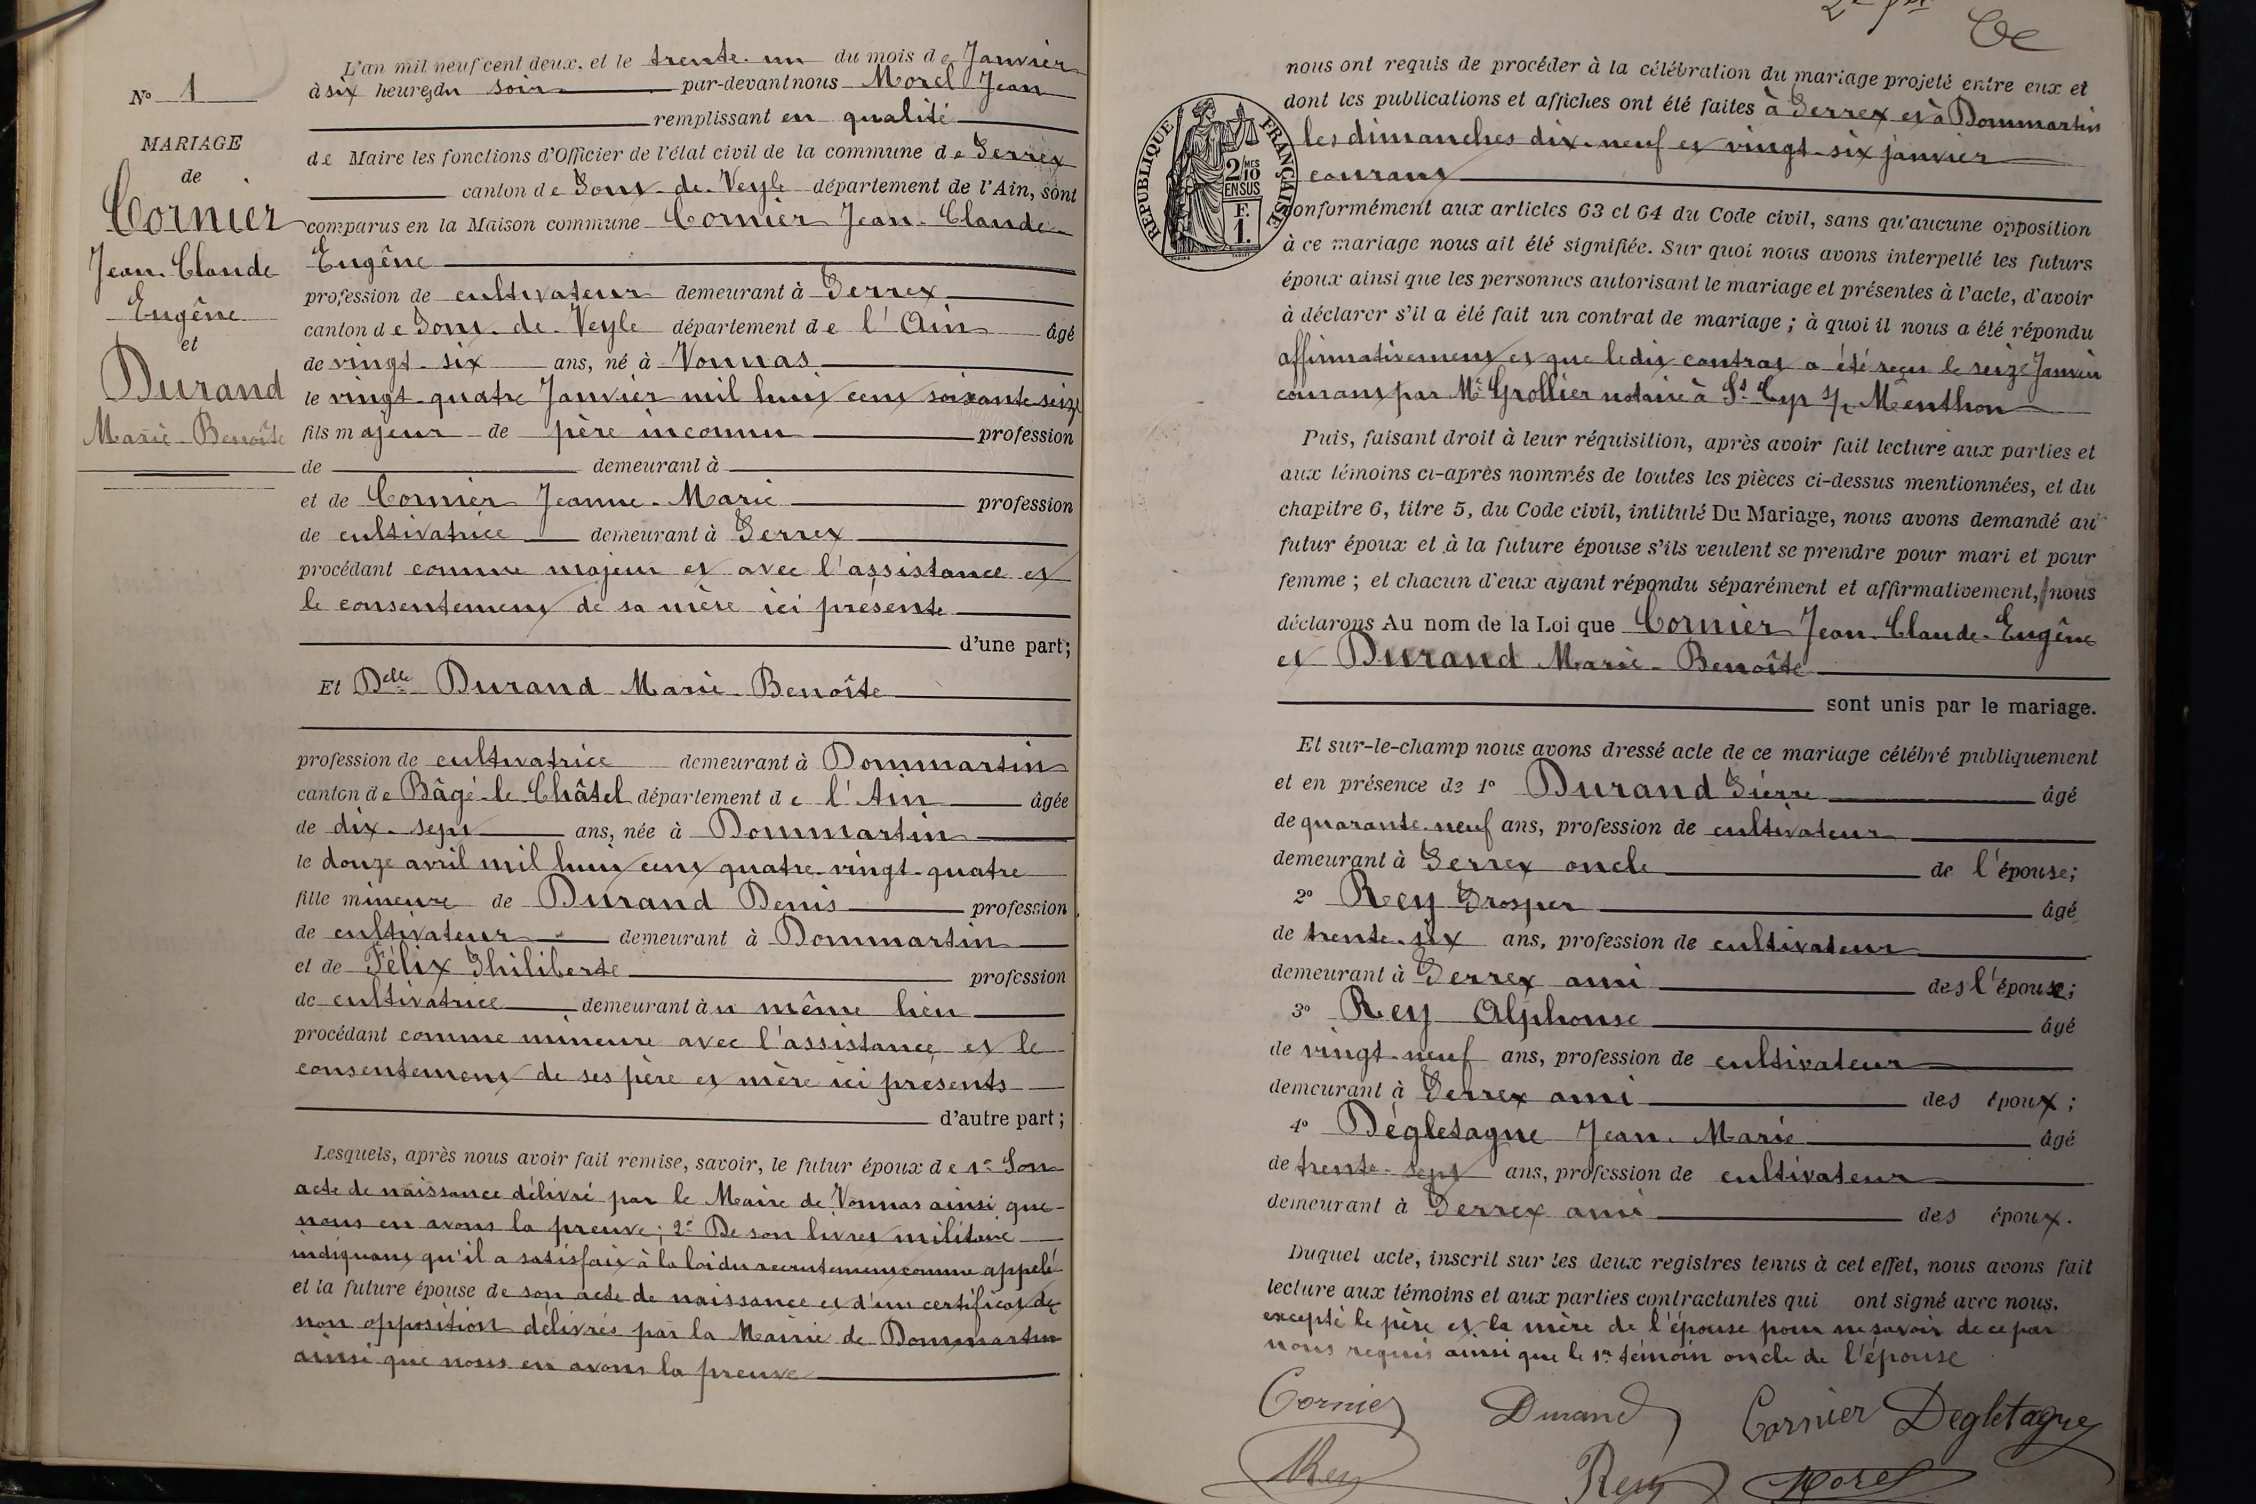 L'an mil neuf cent deux, et le trente-un du mois de Janvier
à six heures du soir par-devant nous Morel Jean
remplissant en qualité
de Maire les fonctions d'Officier de l'état civil de la commune de Perrex
canton de Pont-de-Veyle département de l'Ain, sont
comparus en la Maison commune Cornier Jean-Claude-
Eugêne
profession de cultivateur demeurant à Perrex
canton de Pont-de-Veyle département de l'Ain âgé
de vingt-six ans, né à Vonnas
le vingt-quatre Janvier mil huit cent soixante-seize
fils majeur de père inconnu profession
de demeurant à
et de Cornier Jeanne-Marie profession
de cultivatrice demeurant à Perrex
procédant comme majeur et avec l'assistance et
le consentement de sa mère ici présente
d'une part;
Et Delle Durand Marie-Benoîte
profession de cultivatrice demeurant à Dommartin
canton de Bâgé-le-Châtel département de l'Ain âgée
de dix-sept ans, née à Dommartin
le douze avril mil huit cent quatre-vingt-quatre
fille mineure de Durand Denis profession
de cultivateur demeurant à Dommartin
et de Félix Philiberte profession
de cultivatrice demeurant au même lieu
procédant comme mineure avec l'assistance et le
consentement de ses père et mère ici présents
d'autre part;
Lesquels, après nous avoir fait remise, savoir, le futur époux de 1° Son
acte de naissance délivré par le Maire de Vonnas ainsi que
nous en avons la preuve; 2° De son livret militaire
indiquant qu'il a satisfait à la loi du recrutement comme appelé
et la future épouse de son acte de naissance et d'un certificat de
non opposition délivrés par la Mairie de Dommartin
ainsi que nous en avons la preuve
N° 1
MARIAGE
de
Cornier
Jean-Claude
Eugêne
et
Durand
Marie-Benoîte
nous ont requis de procéder à la célébration du mariage projeté entre eux et
dont les publications et affiches ont été faites à Perrex et à Dommartin
les dimanches dix-neuf et vingt-six janvier
courant
conformément aux articles 63 et 64 du Code civil, sans qu'aucune opposition
à ce mariage nous ait été signifiée. Sur quoi nous avons interpellé les futurs
époux ainsi que les personnes autorisant le mariage et présentes à l'acte, d'avoir
à déclarer s'il a été fait un contrat de mariage; à quoi il nous a été répondu
affirmativement et que ledit contrat a été reçu le seize Janvier
courant par Me Grollier notaire à St Cyr s/ Menthon
Puis, faisant droit à leur réquisition, après avoir fait lecture aux parties et
aux témoins ci-après nommés de toutes les pièces ci-dessus mentionnées, et du
chapitre 6, titre 5, du Code civil, intitulé Du Mariage, nous avons demandé au
futur époux et à la future épouse s'ils veulent se prendre pour mari et pour
femme; et chacun d'eux ayant répondu séparément et affirmativement, nous
déclarons Au nom de la Loi que Cornier Jean-Claude-Eugêne
et Durand Marie-Benoîte
sont unis par le mariage.
Et sur-le-champ nous avons dressé acte de ce mariage célébré publiquement
et en présence de 1° Durand Pierre âgé
de quarante-neuf ans, profession de cultivateur
demeurant à Perrex oncle de l'épouse;
2° Rey Prosper âgé
de trente-six ans, profession de cultivateur
demeurant à Perrex ami des l'épouse;
3° Rey Alphonse âgé
de vingt-neuf ans, profession de cultivateur
demeurant à Perrex ami des époux;
4° Dégletagne Jean-Marie âgé
de trente-sept ans, profession de cultivateur
demeurant à Perrex ami des époux.
Duquel acte, inscrit sur les deux registres tenus à cet effet, nous avons fait
lecture aux témoins et aux parties contractantes qui ont signé avec nous.
excepté le père et la mère de l'épouse pour ne savoir de ce par
nous requis ainsi que le 1er témoin oncle de l'épouse
Cornier Durand Cornier Degletagne
Rey Rey Morel
RÉPUBLIQUE FRANÇAISE
2/10
MES
EN SUS
F.
1.